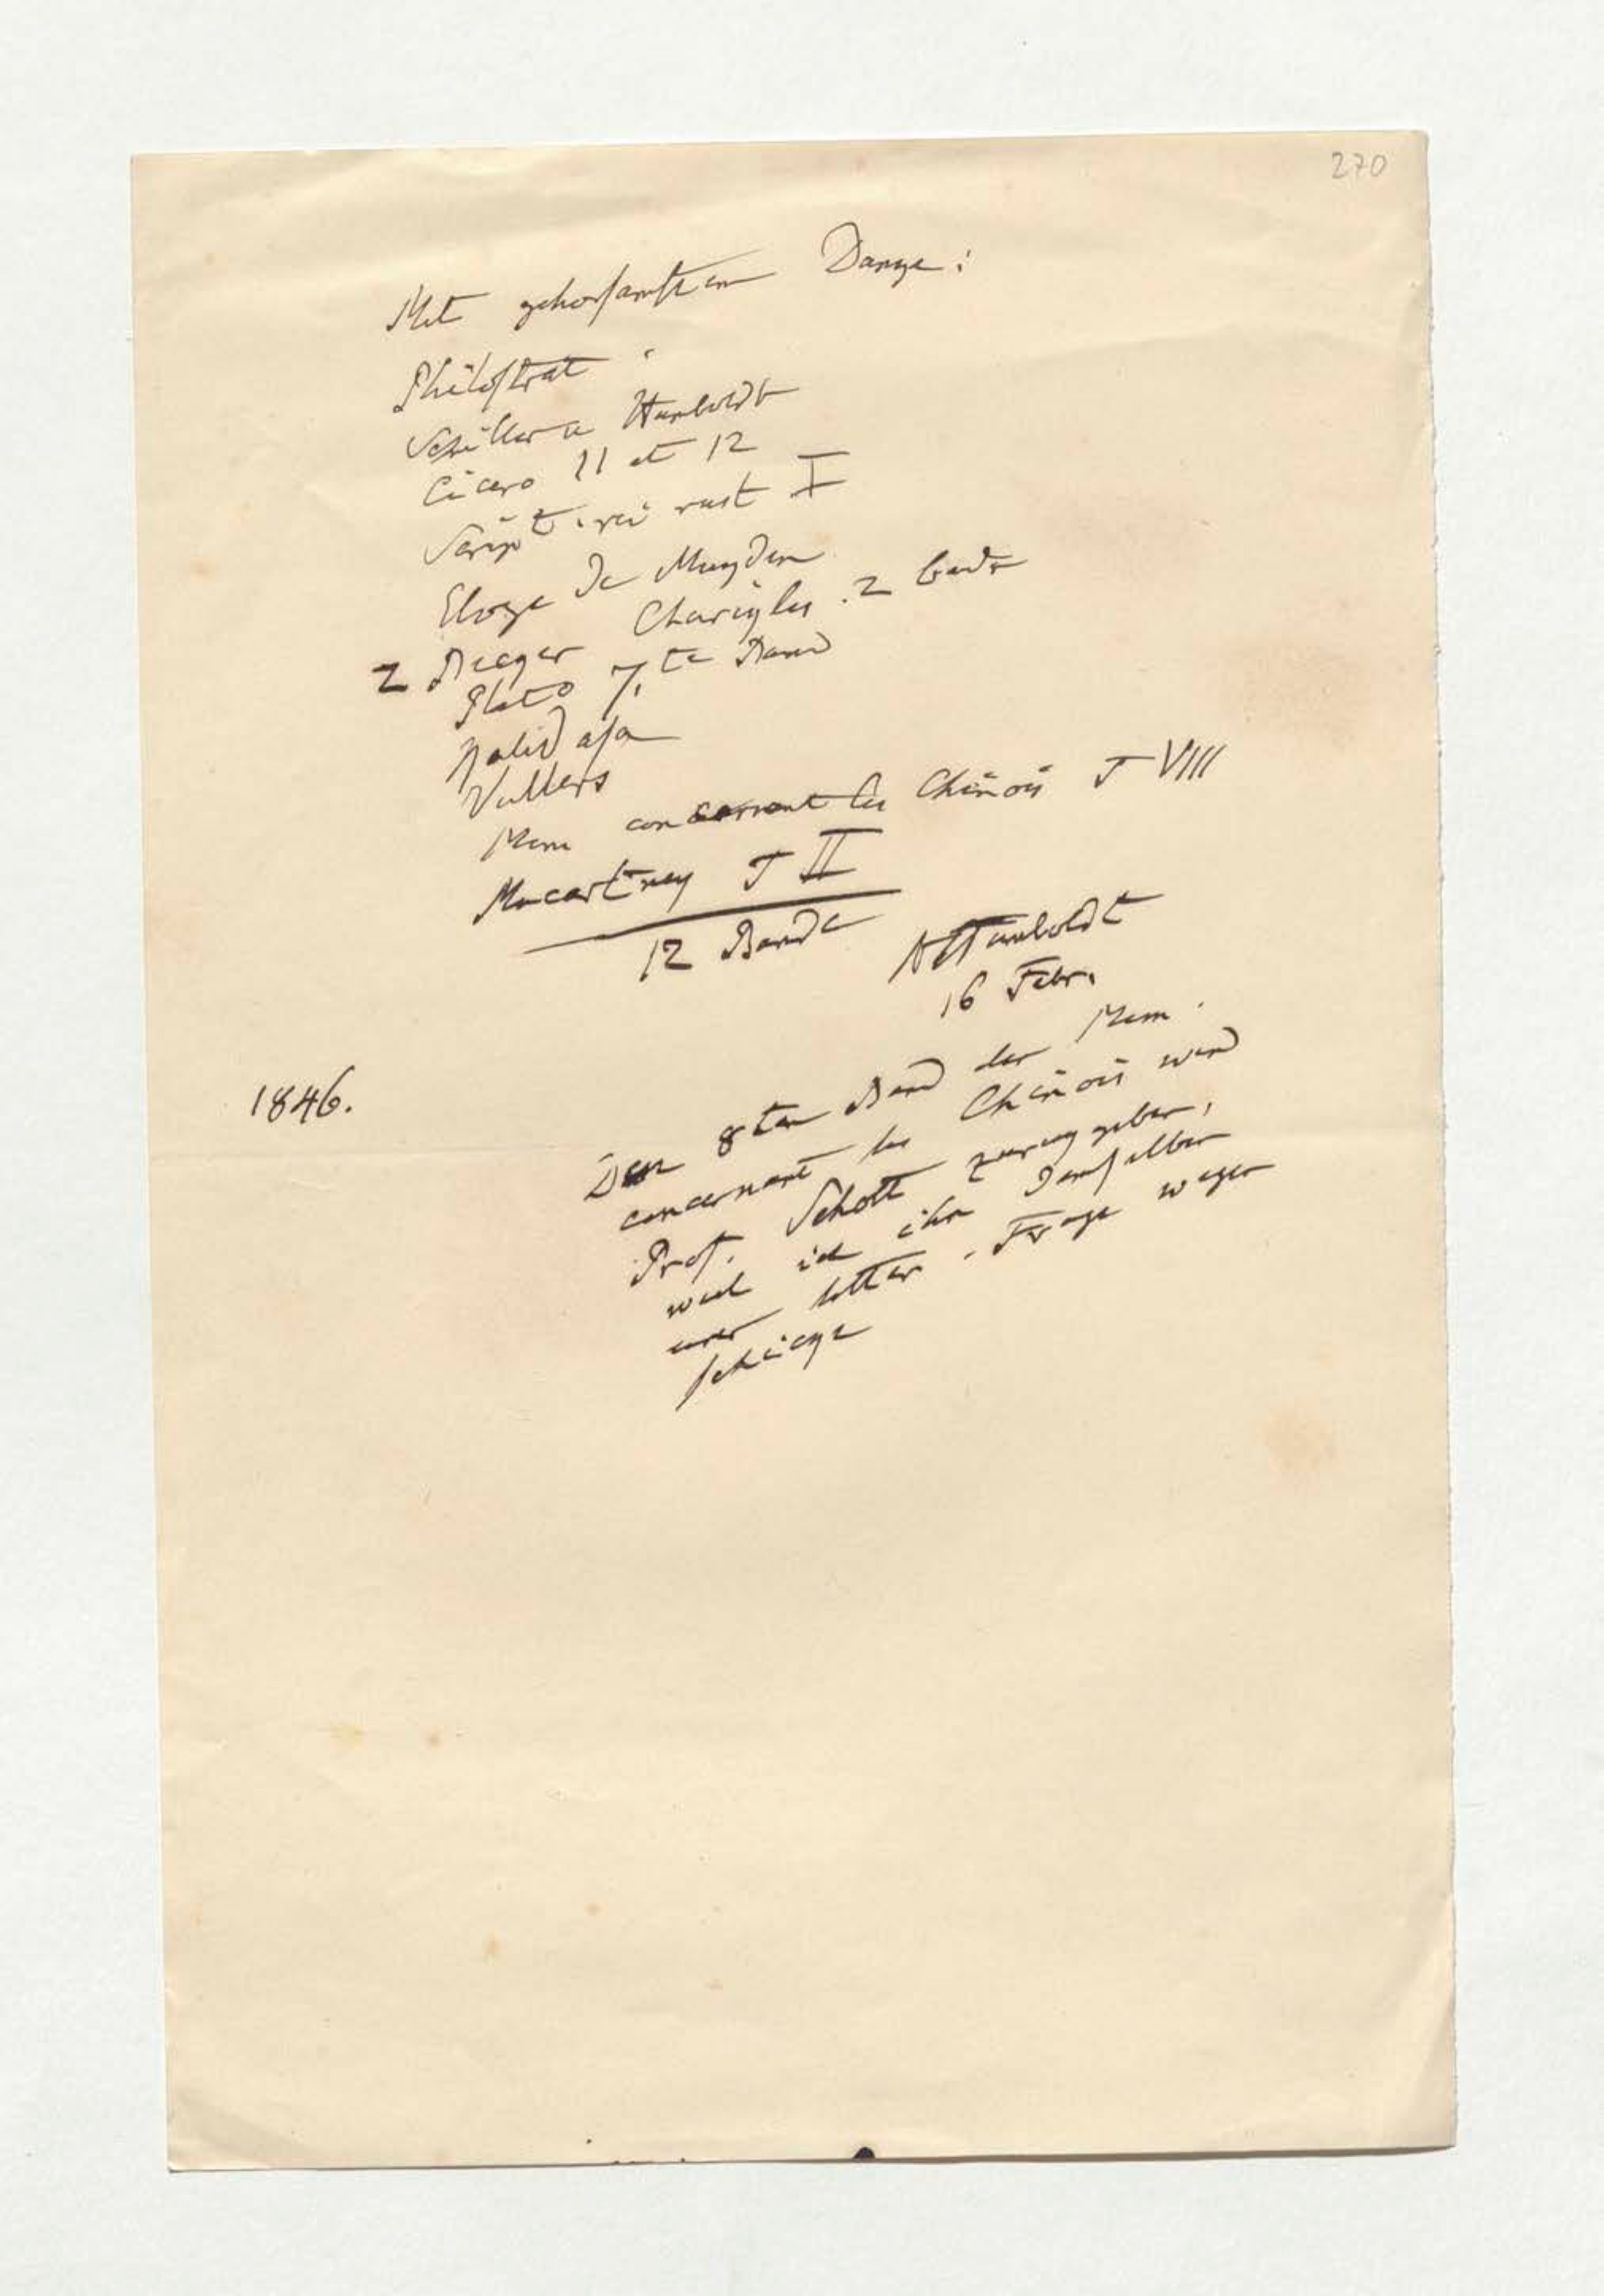 270
Mit gehorsamstem Danke:
Philostrat
Schiller u Humboldt
Cicero 11 et 12
Script. rei rust I
Eloge de Muyden
2 Becker Charicles. 2 Bände
Plato 7te Band
Kalidasa
Vullers
Mem concernant les Chinois T VIII
Macartney T II
12 Bände
AHumboldt
16 Febr.
1846.
Den 8ten Band der Mem.
concernant les Chinois wird
Prof. Schott zurückgeben,
weil ich ihn demselben
einer Frage wegen
schicke